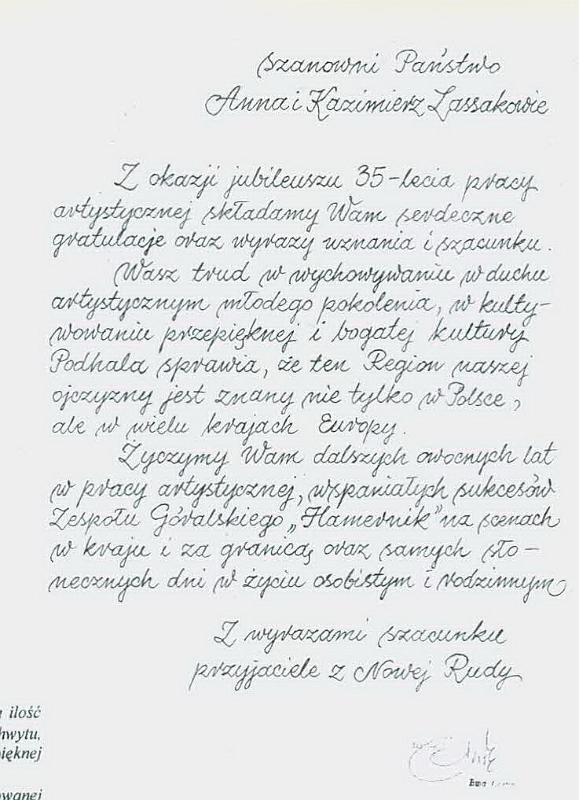 Szanowni Państwo
Anna i Kazimierz Lassakowie
Z okazji jubileuszu 35-lecia pracy
artystycznej składamy Wam serdeczne
gratulacje oraz wyrazy uznania i szacunku.
Wasz trud w wychowywaniu w duchu
artystycznym młodego pokolenia, w kulty-
wowaniu przepięknej i bogatej kultury
Podhala sprawia, że ten Region naszej
ojczyzny jest znany nie tylko w Polsce,
ale w wielu krajach Europy.
Życzymy Wam dalszych owocnych lat
w pracy artystycznej, wspaniałych sukcesów
Zespołu Góralskiego „Hamernik" na scenach
w kraju i za granicą oraz samych sło-
necznych dni w życiu osobistym i rodzinnym
Z wyrazami szacunku
przyjaciele z Nowej Rudy
ilość
hwytu,
ięknej
owanej
Ewa